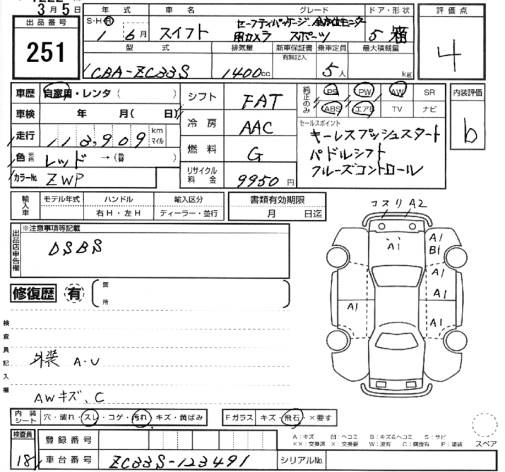 3月5日
出品番号
251
年式 車名 グレード ドア・形状 評価点
S・H・R
1年6月 スイフト セーフティパッケージ 全方位モニター 5箱
用カメラ スポーツ
4
型式 排気量 新車保証書 乗車定員 最大積載量
有無記入
CBA-ZC33S 1400cc 5人 kg
車歴 自家用・レンタ( )
車検 年 月( 日)
走行 113,909 km マイル
色 レッド →(替)
カラーNo. ZWP
シフト FAT
冷房 AAC
燃料 G
リサイクル料金 9950円
純正のみ PS PW AW SR
ABS エアB TV ナビ
セールスポイント
キーレスプッシュスタート
パドルシフト
クルーズコントロール
内装評価
b
輸入車 モデル年式 ハンドル 輸入区分
右H・左H ディーラー・並行
書類有効期限
月 日迄
出品店申告欄
※注意事項等記載
DSBS
修復歴 有
箇所
検査員記入欄
外装 A・U
AWキズ、C
コスリ A2
A1
A1
B1
A1
A1
A1
A1
内装シート 穴・破れ・スレ・コゲ・汚れ・キズ・黄ばみ Fガラス キズ・飛石・×要す
A：キズ U：ヘコミ B：キズ&ヘコミ S：サビ
××：交換済 X：交換要 W：波有 C：腐食有 P：塗装
スペア
検査員
18
登録番号
車台番号 ZC33S-123491 シリアルNo.